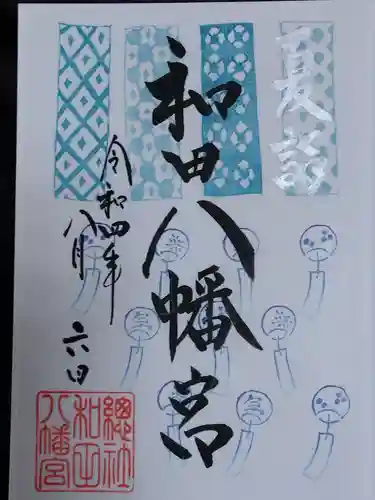 夏詣
和田八幡宮
令和四年
八月
六日
總社
和田
八幡宮